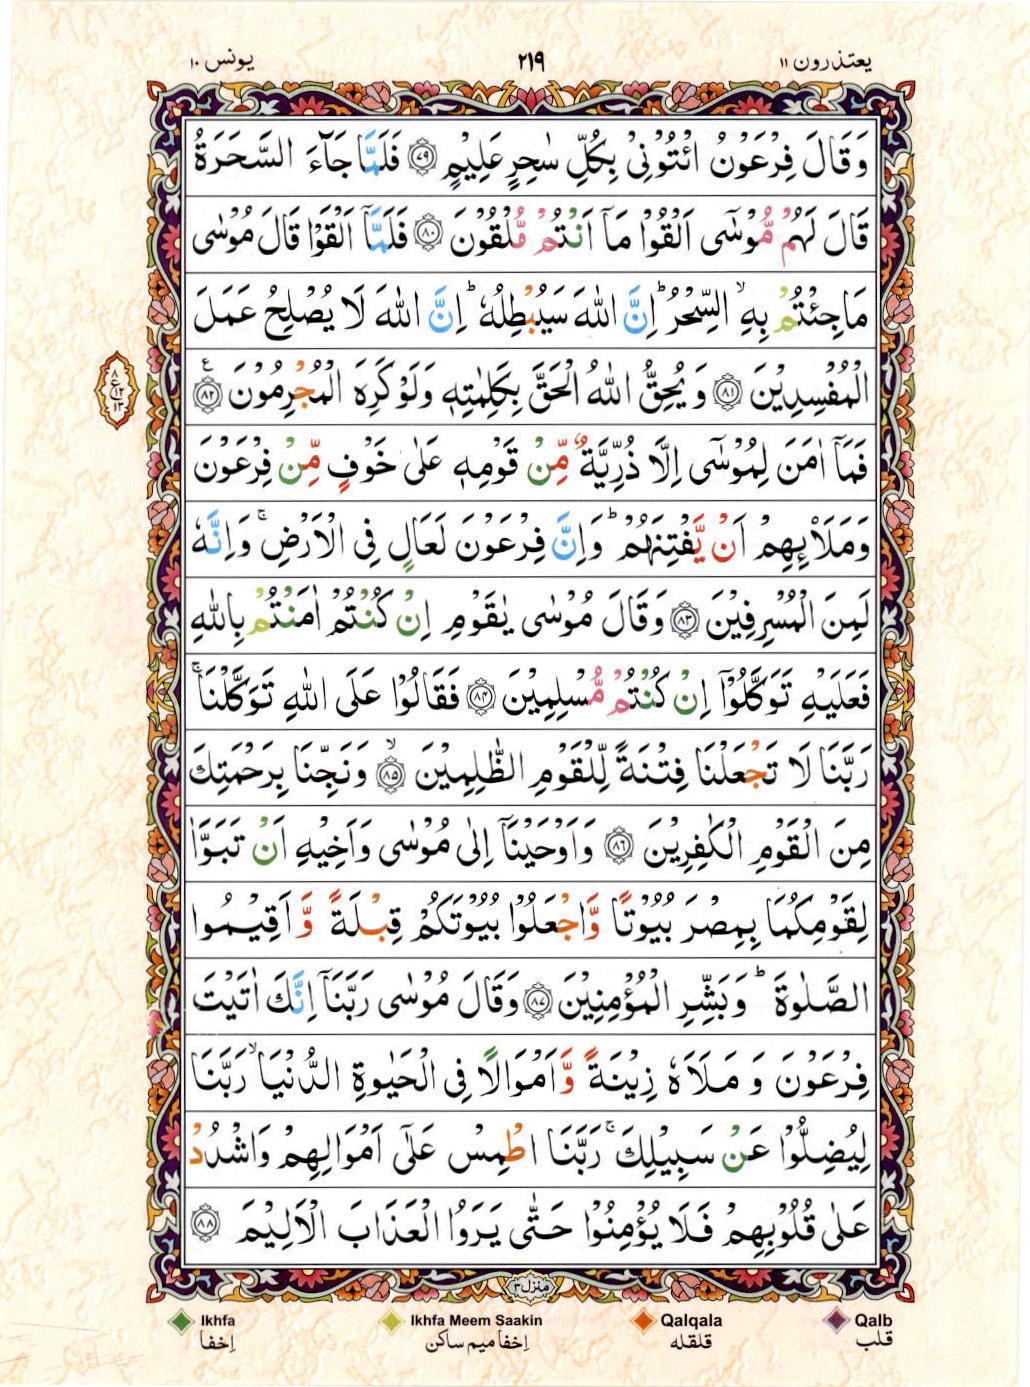 يعتذرون ١١
٢١٩
يونس ١٠
وَقَالَ فِرْعَوْنُ ائْتُوْنِیْ بِكُلِّ سٰحِرٍ عَلِیْمٍ ﴿٧٩﴾ فَلَمَّا جَآءَ السَّحَرَةُ
قَالَ لَهُمْ مُّوْسٰۤی اَلْقُوْا مَاۤ اَنْتُمْ مُّلْقُوْنَ ﴿٨٠﴾ فَلَمَّاۤ اَلْقَوْا قَالَ مُوْسٰی
مَا جِئْتُمْ بِهِ ۙ السِّحْرُ ؕ اِنَّ اللّٰهَ سَیُبْطِلُهٗ ؕ اِنَّ اللّٰهَ لَا یُصْلِحُ عَمَلَ
الْمُفْسِدِیْنَ ﴿٨١﴾ وَ یُحِقُّ اللّٰهُ الْحَقَّ بِكَلِمٰتِهٖ وَلَوْ كَرِهَ الْمُجْرِمُوْنَ ﴿٨٢﴾ ع
٨
ع
١٢
١٣
فَمَاۤ اٰمَنَ لِمُوْسٰۤی اِلَّا ذُرِّیَّةٌ مِّنْ قَوْمِهٖ عَلٰی خَوْفٍ مِّنْ فِرْعَوْنَ
وَمَلَاۡئِهِمْ اَنْ یَّفْتِنَهُمْ ؕ وَاِنَّ فِرْعَوْنَ لَعَالٍ فِی الْاَرْضِ ۚ وَاِنَّهٗ
لَمِنَ الْمُسْرِفِیْنَ ﴿٨٣﴾ وَقَالَ مُوْسٰی یٰقَوْمِ اِنْ كُنْتُمْ اٰمَنْتُمْ بِاللّٰهِ
فَعَلَیْهِ تَوَكَّلُوْۤا اِنْ كُنْتُمْ مُّسْلِمِیْنَ ﴿٨٤﴾ فَقَالُوْا عَلَی اللّٰهِ تَوَكَّلْنَا ۚ
رَبَّنَا لَا تَجْعَلْنَا فِتْنَةً لِّلْقَوْمِ الظّٰلِمِیْنَ ۙ ﴿٨٥﴾ وَنَجِّنَا بِرَحْمَتِكَ
مِنَ الْقَوْمِ الْكٰفِرِیْنَ ﴿٨٦﴾ وَاَوْحَیْنَاۤ اِلٰی مُوْسٰی وَاَخِیْهِ اَنْ تَبَوَّاٰ
لِقَوْمِكُمَا بِمِصْرَ بُیُوْتًا وَّاجْعَلُوْا بُیُوْتَكُمْ قِبْلَةً وَّاَقِیْمُوا
الصَّلٰوةَ ؕ وَبَشِّرِ الْمُؤْمِنِیْنَ ﴿٨٧﴾ وَقَالَ مُوْسٰی رَبَّنَاۤ اِنَّكَ اٰتَیْتَ
فِرْعَوْنَ وَ مَلَاَهٗ زِیْنَةً وَّاَمْوَالًا فِی الْحَیٰوةِ الدُّنْیَا ۙ رَبَّنَا
لِیُضِلُّوْا عَنْ سَبِیْلِكَ ۚ رَبَّنَا اطْمِسْ عَلٰۤی اَمْوَالِهِمْ وَاشْدُدْ
عَلٰی قُلُوْبِهِمْ فَلَا یُؤْمِنُوْا حَتّٰی یَرَوُا الْعَذَابَ الْاَلِیْمَ ﴿٨٨﴾
منزل ٣
Ikhfa Ikhfa Meem Saakin Qalqala Qalb
إخفا إخفا ميم ساكن قلقله قلب